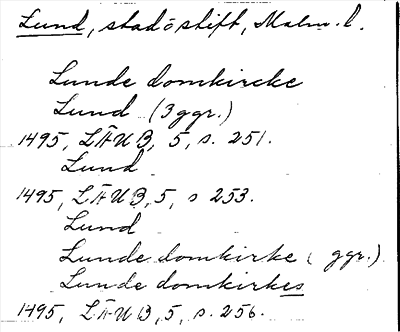 Lund, stad o stift, Malm. l.
Lunde domkircke
Lund (3 ggr.)
1495, LÄUB, 5, s. 251.
Lund
1495, LÄUB, 5, s 253.
Lund
Lunde domkirke ( ggr.)
Lunde domkirkes
1495, LÄUB, 5, s. 256.